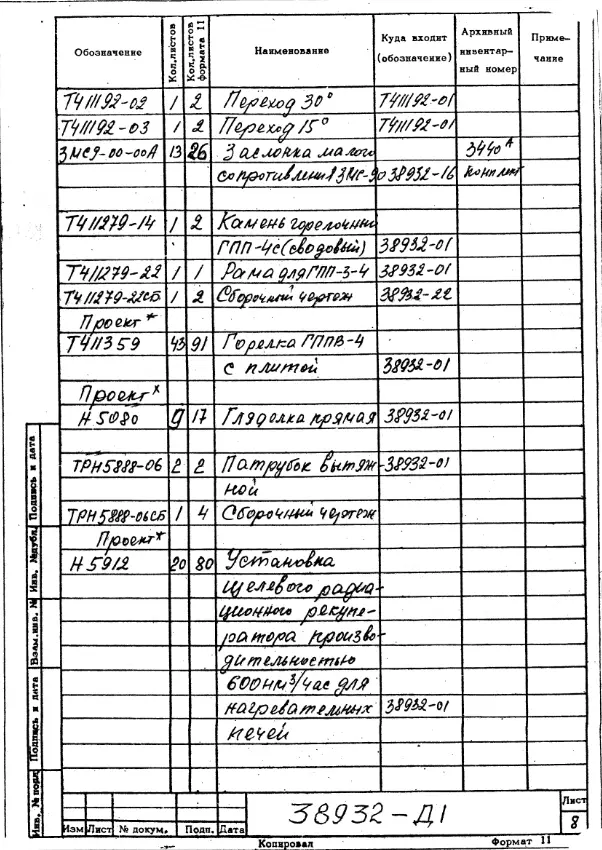 Обозначение Кол.листов Кол.листов формата 11 Наименование Куда входит (обозначение) Архивный инвентарный номер Примечание
Т411192-02 1 2 Переход 30° Т411192-01
Т411192-03 1 2 Переход 15° Т411192-01
3МС9-00-00А 13 26 Заслонка малого 3440А
сопротивления 3МС-90 38932-16 комплект
Т411279-14 1 2 Камень горелочный
ГПП-4с(сводовый) 38932-01
Т411279-22 1 1 Рама для ГПП-3-4 38932-01
Т411279-22СБ 1 2 Сборочный чертеж 38932-22
Проект*
Т411359 43 91 Горелка ГППВ-4
с плитой 38932-01
Проект*
Н5080 9 17 Гляделка прямая 38932-01
ТРН5888-06 2 2 Патрубок вытяж- 38932-01
ной
ТРН5888-06СБ 1 4 Сборочный чертеж
Проект*
Н5912 20 80 Установка
щелевого радиа-
ционного рекупе-
ратора произво-
дительностью
600нм³/час для
нагревательных 38932-01
печей
Подпись и дата
Инв. №дубл.
Взам.инв. №
Подпись и дата
Инв. №подл
38932-Д1
Лист
8
Изм Лист № докум. Подп. Дата
Копировал Формат 11